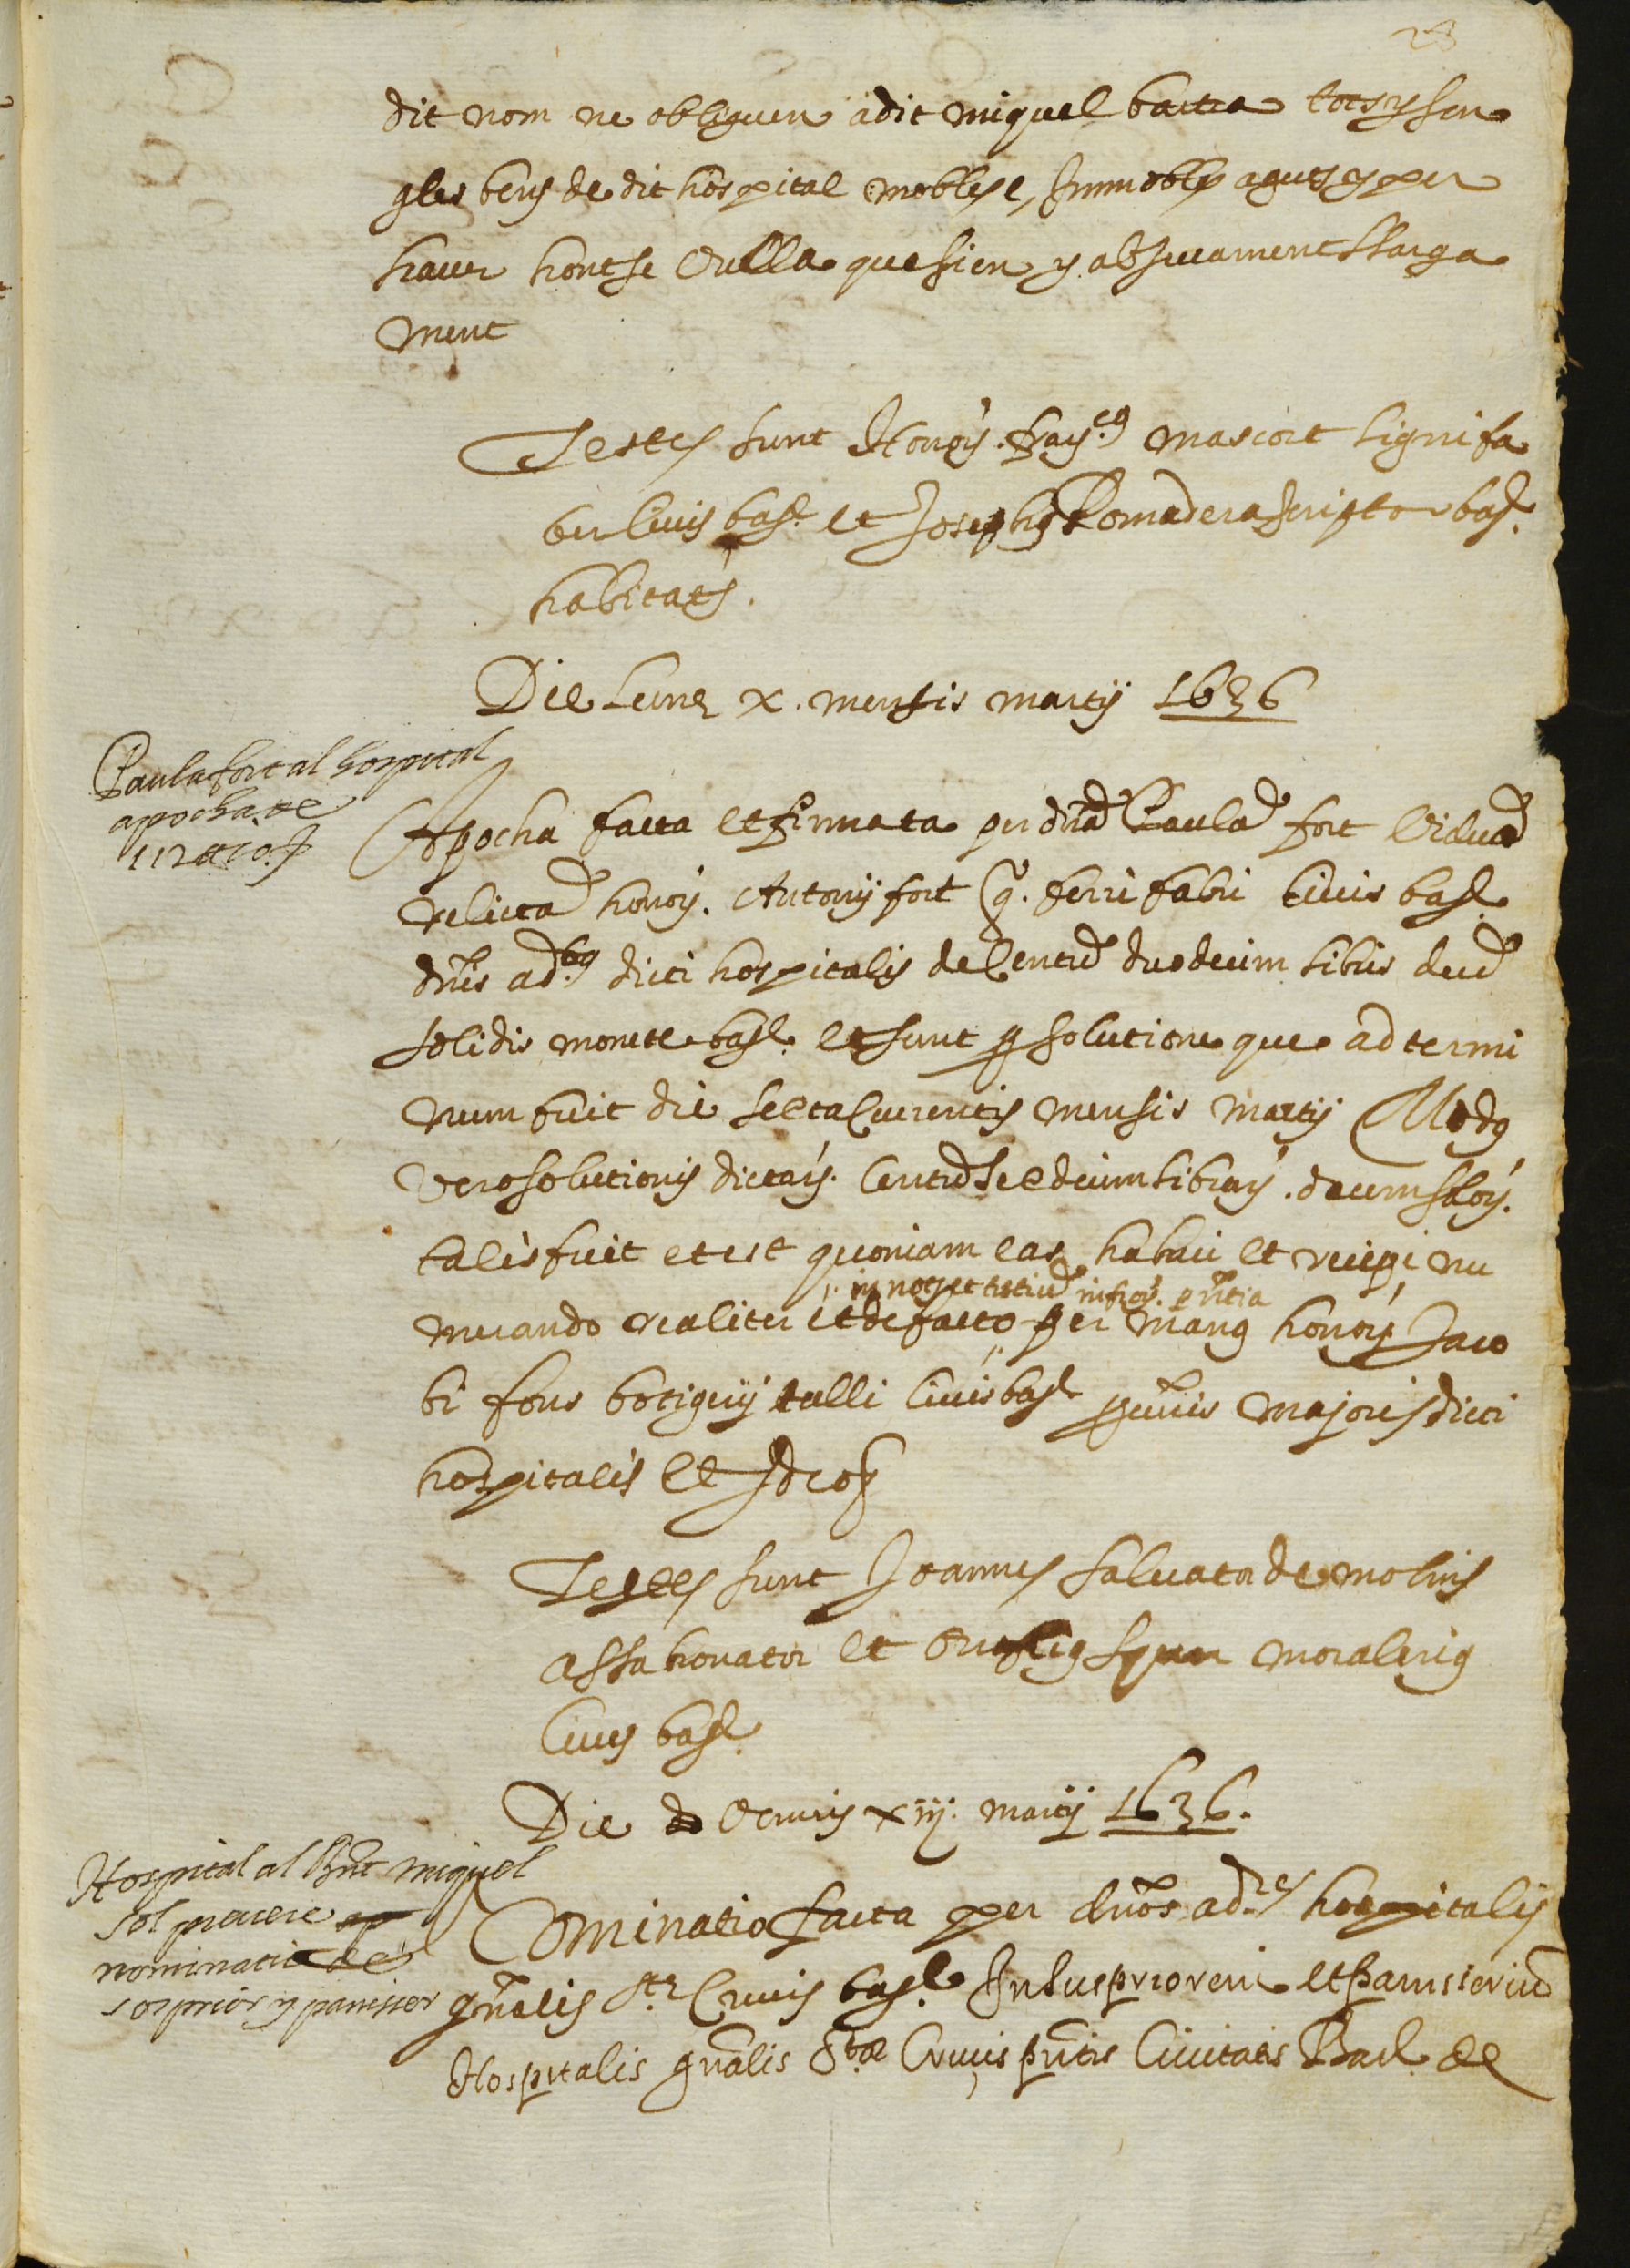 23
dit nom ne obliguen a dit miquel batta tots y sen
gles bens de dit hospital mobles e, Immobles aguts y per
hauer hont se vulla que sien y ab jurament llarga
ment
Testes sunt Honoy. fray.cus mascort lignifa
ber ciuis bar. et Josephus Romadera scriptor bar.
habitats.
Die Lune x. mensis martij 1636
Paula fort al hospital
apocha de
112 ll 10 s
Apocha facta et firmata per dnam Paulam fort viduam
relictam honoy. Antonij fort q. ferri fabri ciuis bar.
dnis ad.bus dicti hospitalis de Centum duodecim libris decem
solidis monete bar. et sunt pro solutione que ad termi
num fuit die sexta Currentis mensis martij Modus
vero solutionis dictay. Centum duodecim libray. decem soloy.
talis fuit et est quoniam eas habui et recepi nu
in nory. et testium infroy. pntia
merando realiter et de facto per manus honoy. Jaco
bi fons botiguij telli Ciuis bar. prioris majoris dicti
hospitalis et Ideo
Testes sunt Joannes saluador de molins
assahonator et moralerius
Ciues bar.
Die Veneris xiiij. martij 1636.
Hospital al Rnt miquel
sol preuere
nominatio de
sos prior y panisser
Nominatio facta per dnos ad.res hospitalis
gnalis Ste Crucis bar. In suis priorem et Panisserium
Hospitalis gnalis Stae Crucis pntis Ciuitatis Barl. de